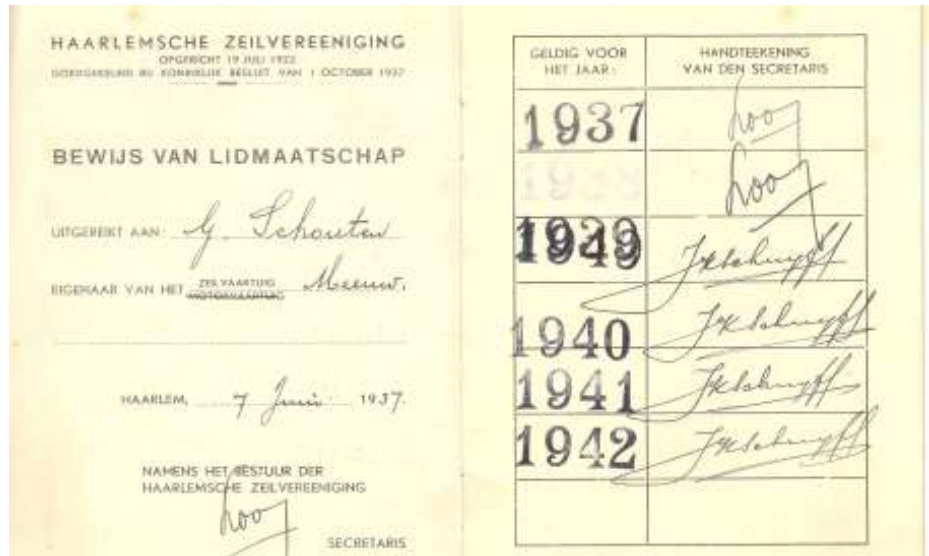 HAARLEMSCHE ZEILVEREENIGING
OPGERICHT 19 JULI 1922
GOEDGEKEURD BIJ KONINKLIJK BESLUIT VAN 1 OCTOBER 1937
BEWIJS VAN LIDMAATSCHAP
UITGEREIKT AAN: G. Schouten
EIGENAAR VAN HET ZEILVAARTUIG Meeuw.
MOTORVAARTUIG
HAARLEM, 7 Juni 1937.
NAMENS HET BESTUUR DER
HAARLEMSCHE ZEILVEREENIGING
Looy
SECRETARIS
GELDIG VOOR HET JAAR:
HANDTEEKENING VAN DEN SECRETARIS
1937 Looy
1938 Looy
1939
1940
1941
1942